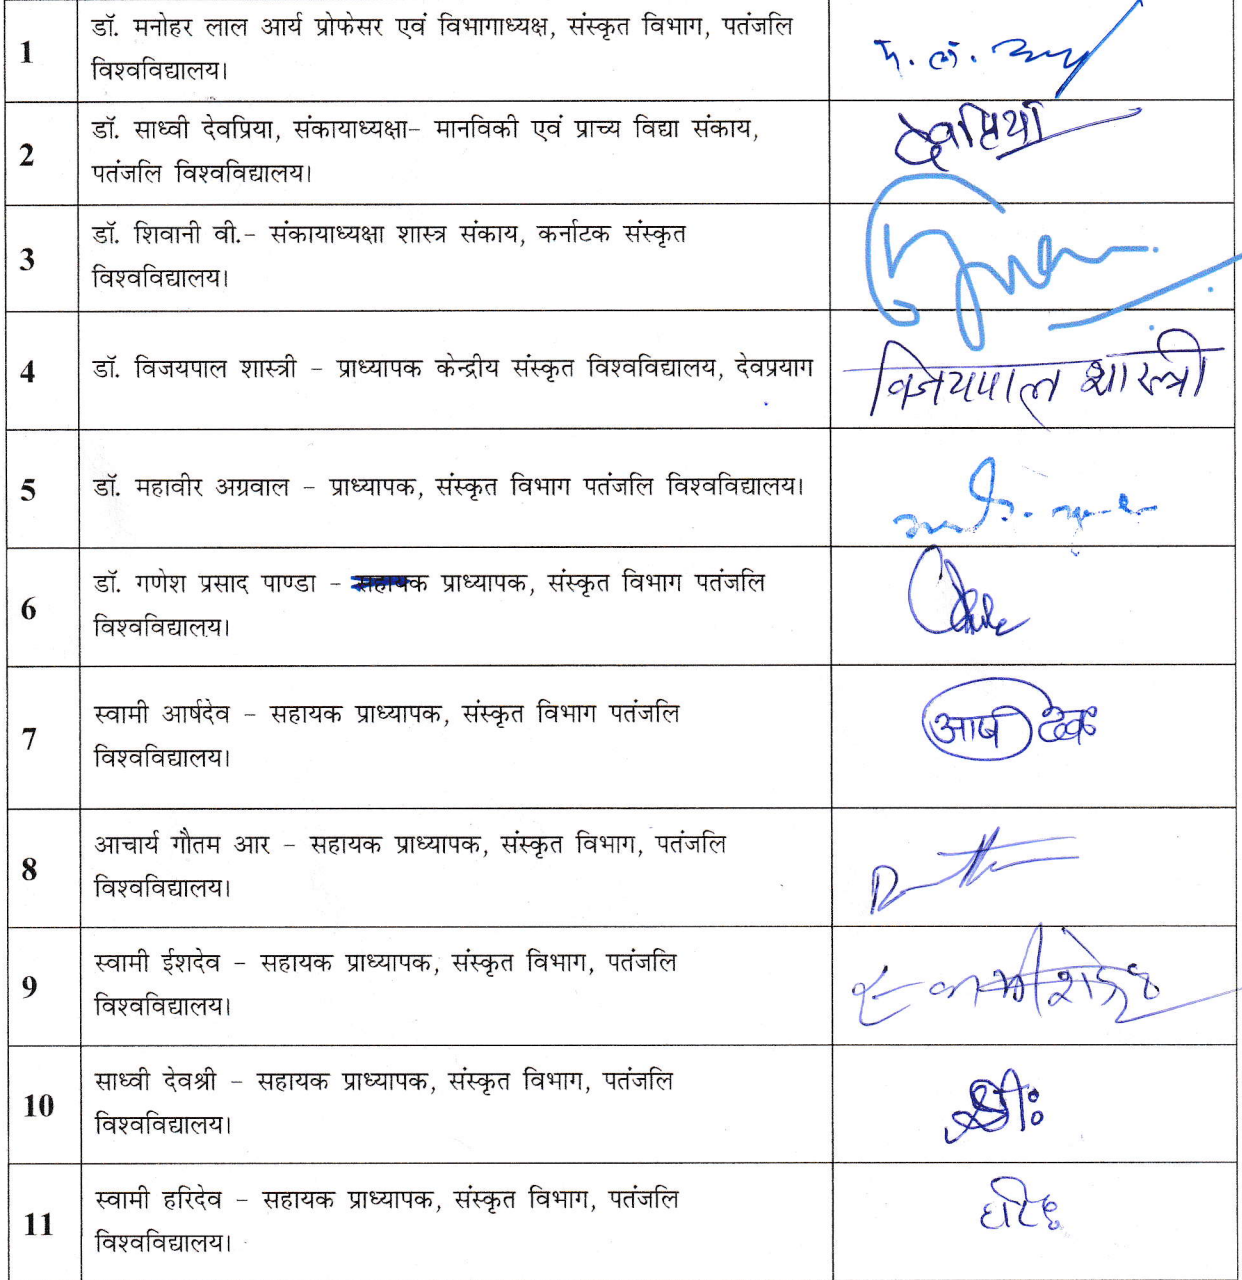 1
डॉ. मनोहर लाल आर्य प्रोफेसर एवं विभागाध्यक्ष, संस्कृत विभाग, पतंजलि
विश्वविद्यालय।
म. ला.
2
डॉ. साध्वी देवप्रिया, संकायाध्यक्षा– मानविकी एवं प्राच्य विद्या संकाय,
पतंजलि विश्वविद्यालय।
देवप्रिया
3
डॉ. शिवानी वी.– संकायाध्यक्षा शास्त्र संकाय, कर्नाटक संस्कृत
विश्वविद्यालय।
4
डॉ. विजयपाल शास्त्री – प्राध्यापक केन्द्रीय संस्कृत विश्वविद्यालय, देवप्रयाग
विजयपाल शास्त्री
5
डॉ. महावीर अग्रवाल – प्राध्यापक, संस्कृत विभाग पतंजलि विश्वविद्यालय।
6
डॉ. गणेश प्रसाद पाण्डा – सहायक प्राध्यापक, संस्कृत विभाग पतंजलि
विश्वविद्यालय।
7
स्वामी आर्षदेव – सहायक प्राध्यापक, संस्कृत विभाग पतंजलि
विश्वविद्यालय।
आर्ष देवः
8
आचार्य गौतम आर – सहायक प्राध्यापक, संस्कृत विभाग, पतंजलि
विश्वविद्यालय।
9
स्वामी ईशदेव – सहायक प्राध्यापक, संस्कृत विभाग, पतंजलि
विश्वविद्यालय।
10
साध्वी देवश्री – सहायक प्राध्यापक, संस्कृत विभाग, पतंजलि
विश्वविद्यालय।
श्रीः
11
स्वामी हरिदेव – सहायक प्राध्यापक, संस्कृत विभाग, पतंजलि
विश्वविद्यालय।